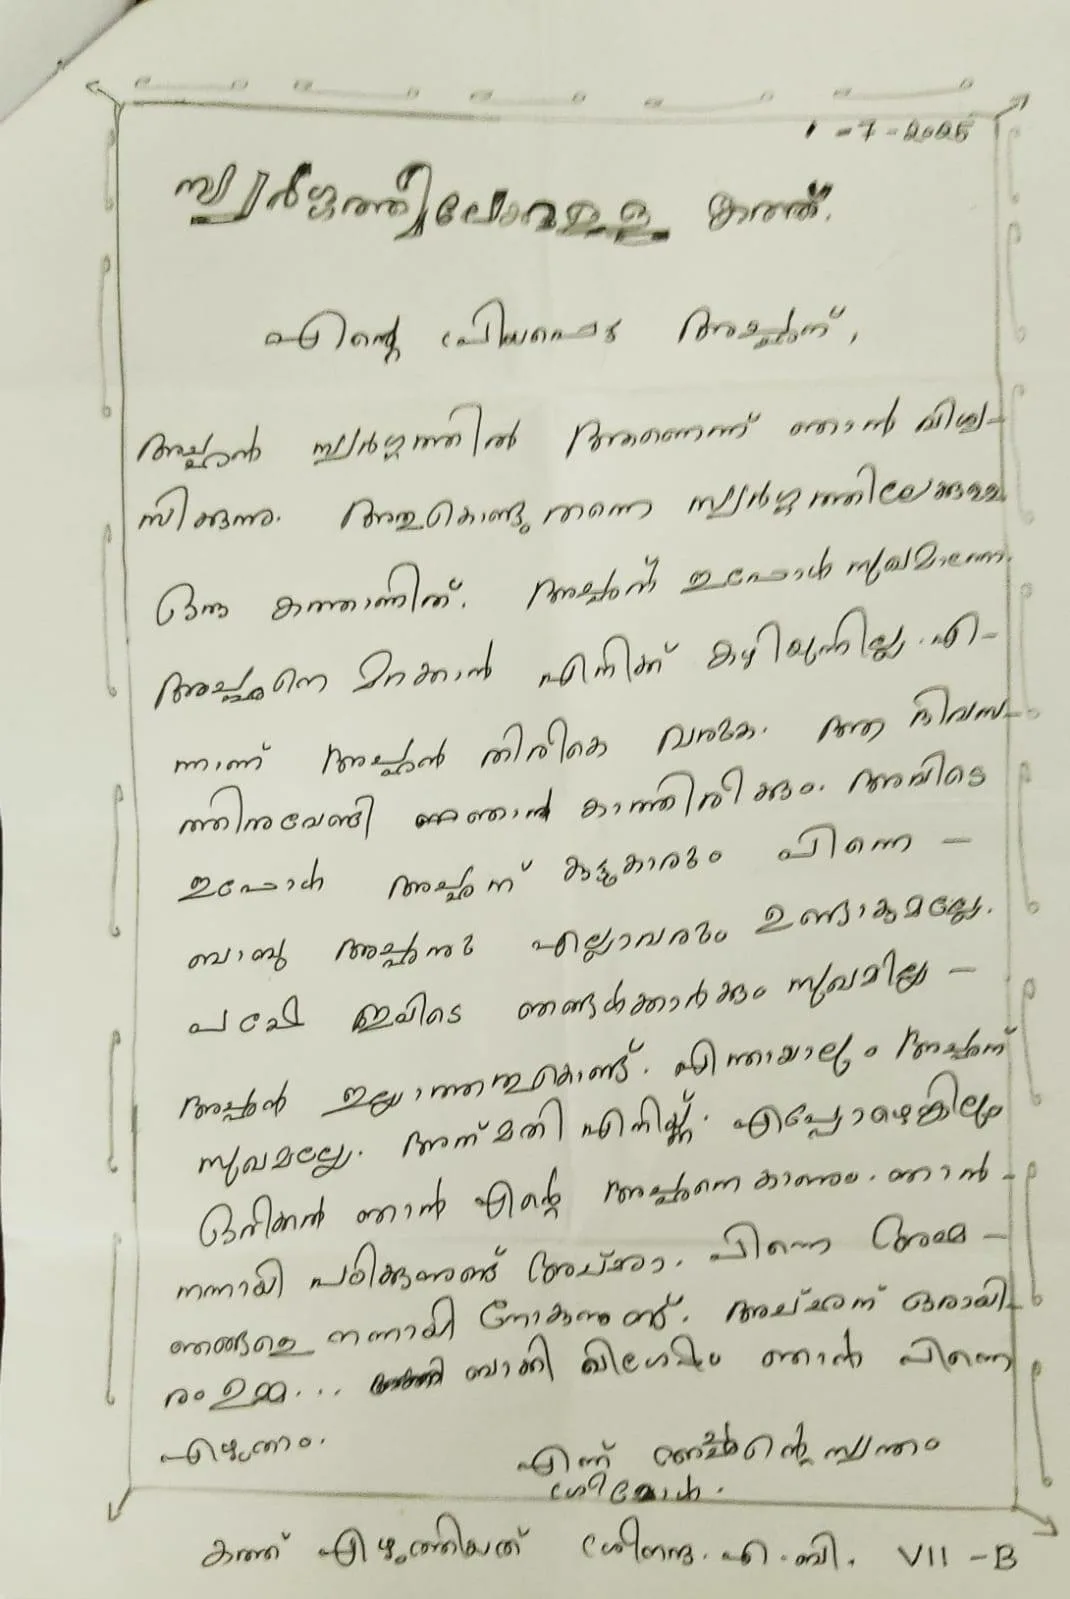 1-7-2025
സ്വർഗ്ഗത്തിലേക്കുള്ള കത്ത്.
എന്റെ പ്രിയപ്പെട്ട അച്ഛന്,
അച്ഛൻ സ്വർഗ്ഗത്തിൽ ആണെന്ന് ഞാൻ വിശ്വ-
സിക്കുന്നു. അതുകൊണ്ടു തന്നെ സ്വർഗ്ഗത്തിലേക്കുള്ള
ഒരു കത്താണിത്. അച്ഛന് ഇപ്പോൾ സുഖമാണോ.
അച്ഛനെ മറക്കാൻ എനിക്ക് കഴിയുന്നില്ല. എ-
ന്നാണ് അച്ഛൻ തിരികെ വരുക. ആ ദിവസ-
ത്തിനുവേണ്ടി ഞാൻ കാത്തിരിക്കും. അവിടെ
ഇപ്പോൾ അച്ഛന് കൂട്ടുകാരും പിന്നെ -
ബാബു അച്ഛനും എല്ലാവരും ഉണ്ടാകുമല്ലേ.
പക്ഷേ ഇവിടെ ഞങ്ങൾക്കാർക്കും സുഖമില്ല -
അച്ഛൻ ഇല്ലാത്തതുകൊണ്ട്. എന്തായാലും അച്ഛന്
സുഖമല്ലേ. അത് മതി എനിക്ക്. എപ്പോഴെങ്കിലും
ഒരിക്കൽ ഞാൻ എന്റെ അച്ഛനെ കാണും. ഞാൻ -
നന്നായി പഠിക്കുന്നുണ്ട് അച്ഛാ. പിന്നെ അമ്മ -
ഞങ്ങളെ നന്നായി നോക്കുന്നുണ്ട്. അച്ഛന് ഒരായി-
രം ഉമ്മ... ബാക്കി വിശേഷം ഞാൻ പിന്നെ
എഴുതാം.
എന്ന് അച്ഛന്റെ സ്വന്തം
ശ്രീമോൾ.
കത്ത് എഴുതിയത് ശ്രീനന്ദ. എ. ബി. VII - B